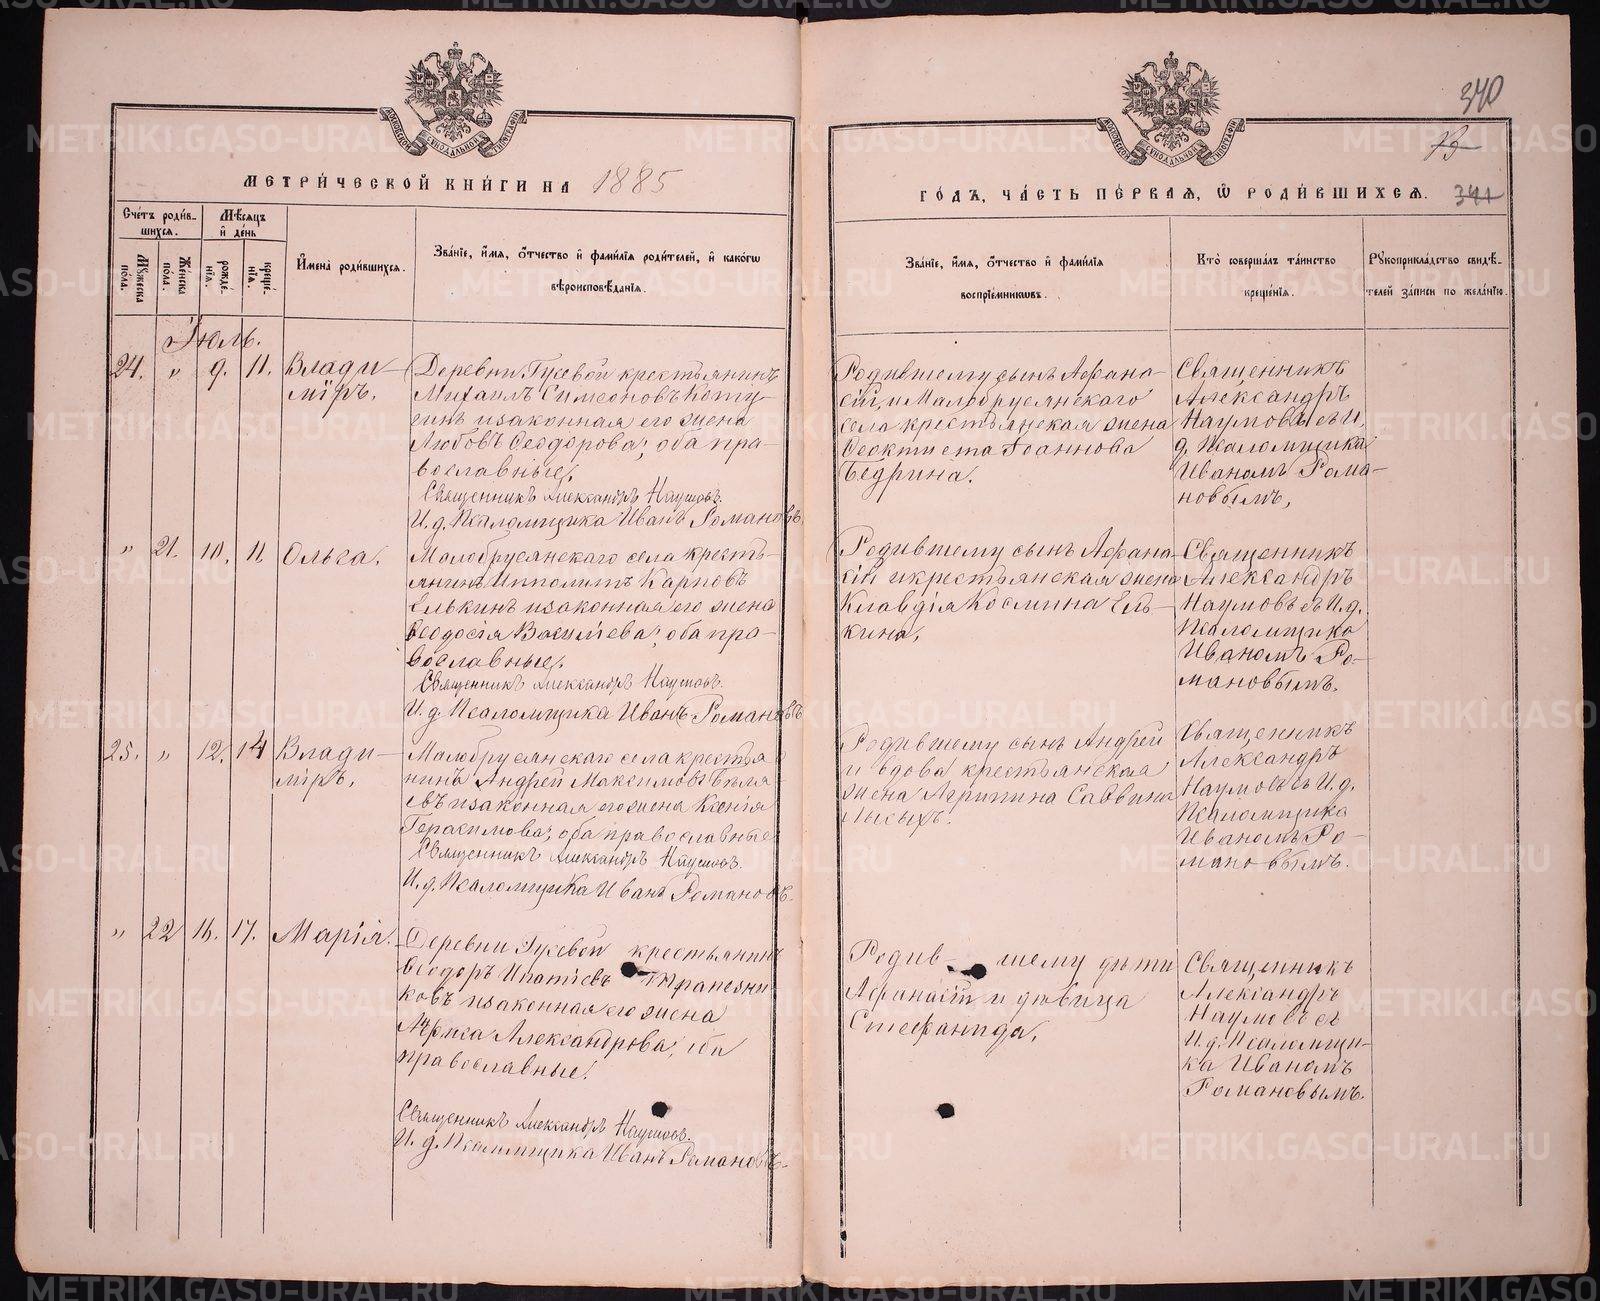 340
73
МЕТРИЧЕСКОЙ КНИГИ НА 1885
ГОДЪ, ЧАСТЬ ПЕРВАЯ, Ѿ РОДИВШИХСЯ. 341
Счетъ родив-
шихся.
Мѣсяцъ
и день
Мужеска
пола.
Женска
пола.
рожде-
нія.
креще-
нія.
Имена родившихся.
Званіе, имя, отчество и фамилія родителей, и какогѡ
вѣроисповѣданія.
Званіе, имя, отчество и фамилія
воспріемникѡвъ.
Кто совершалъ таинство
крещенія.
Рукоприкладство свидѣ-
телей записи по желанію.
Іюль.
24. „ 9. 11. Влади-
міръ.
Деревни Гусевой крестьянинъ
Михаилъ Симеоновъ
и законная его жена
Любовь Ѳеодорова; оба пра-
вославные.
Священникъ Александръ Наумовъ.
И. д. Псаломщика Иванъ Романовъ.
Родившему сынъ Аѳана-
сій, и Малобрусянскаго
села крестьянская жена
Ѳеоктиста Іоаннова
Бедрина.
Священникъ
Александръ
Наумовъ съ И.
д. Псаломщика
Иваномъ Рома-
новымъ.
„ 21. 10. 11. Ольга.
Малобрусянскаго села кресть-
янинъ Ипполитъ Карповъ
Елькинъ и законная его жена
Ѳеодосія Васильева; оба пра-
вославные.
Священникъ Александръ Наумовъ.
И. д. Псаломщика Иванъ Романовъ
Родившему сынъ Аѳана-
сій и крестьянская жена
Клавдія Космина Ель-
кина.
Священникъ
Александръ
Наумовъ съ И. д.
Псаломщика
Иваномъ Ро-
мановымъ.
25. „ 12. 14 Влади-
міръ.
Малобрусянскаго села крестья-
нинъ Андрей Максимовъ Бѣля-
евъ и законная его жена Ксенія
Герасимова; оба православные
Священникъ Александръ Наумовъ.
И. д. Псаломщика Иванъ Романовъ.
Родившему сынъ Андрей
и вдова крестьянская
жена Агрипина Саввина
Лысыхъ.
Священникъ
Александръ
Наумовъ съ И. д.
Псаломщика
Иваномъ Ро-
мановымъ.
„ 22 16. 17. Марія.
Деревни Гусевой крестьянинъ
Ѳеодоръ Ипатіевъ Трапезни-
ковъ и законная его жена
Александрова; оба
православные.
Священникъ Александръ Наумовъ.
И. д. Псаломщика Иванъ Романовъ.
Родив- шему дѣти
Аѳанасій и дѣвица
Стефанида.
Священникъ
Александръ
Наумовъ съ
И. д. Псаломщи-
ка Иваномъ
Романовымъ.
METRIKI.GASO-URAL.RU